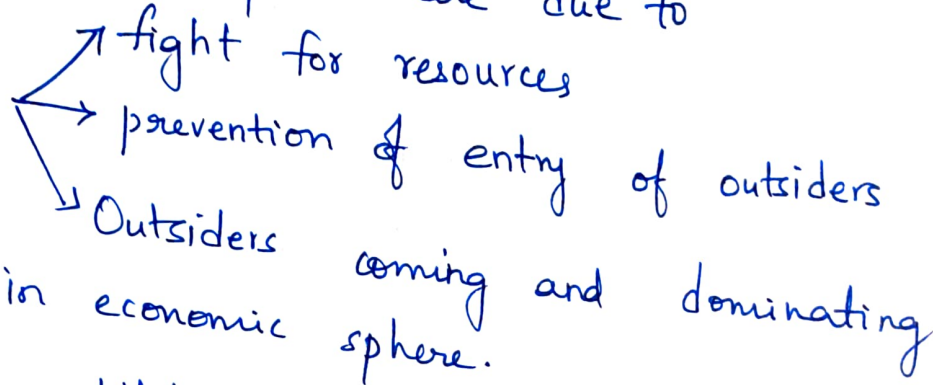 due to
fight for resources
prevention of entry of outsiders
Outsiders coming and dominating
in economic sphere.